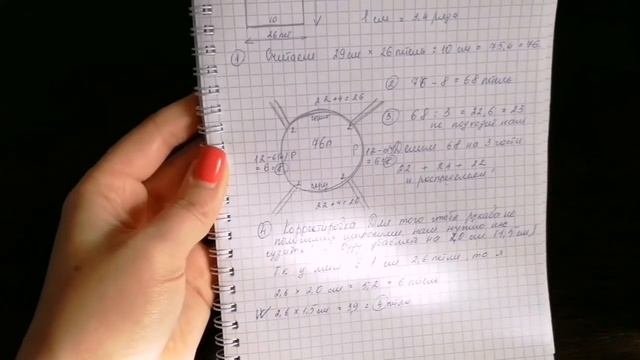 10
26 пет
1 см = 3.4 ряда
① Считаем 29 см × 26 петель : 10 см = 75,4 = 76
② 76 - 8 = 68 петель
③ 68 : 3 = 22,6 = 23
не подходит нам
Делим 68 на 3 части
22 + 24 + 22
и распределяем
22+4=26
2 перед 2
76п
Р
Р
12-6
= 6
12-
= 6
2
2
22+4=26
④ Корректировка Для того чтобы рукава не
нам нужно их
убавляем на 2,0 см (1,5 см)
Тк у меня в 1 см 2,6 петли, то я
2,6 × 2,0 см = 5,2 = 6 петель
2,6 × 1,5 см = 3,9 = 4 петли